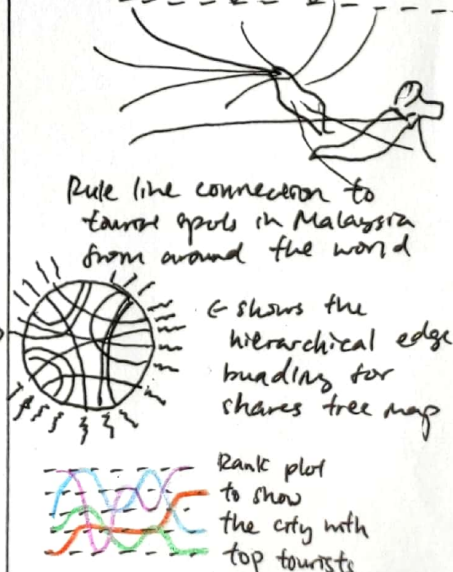 Rule line connection to
tourist spots in Malaysia
from around the world
← shows the
hierarchical edge
bundling for
shares tree map
Rank plot
to show
the city with
top tourists